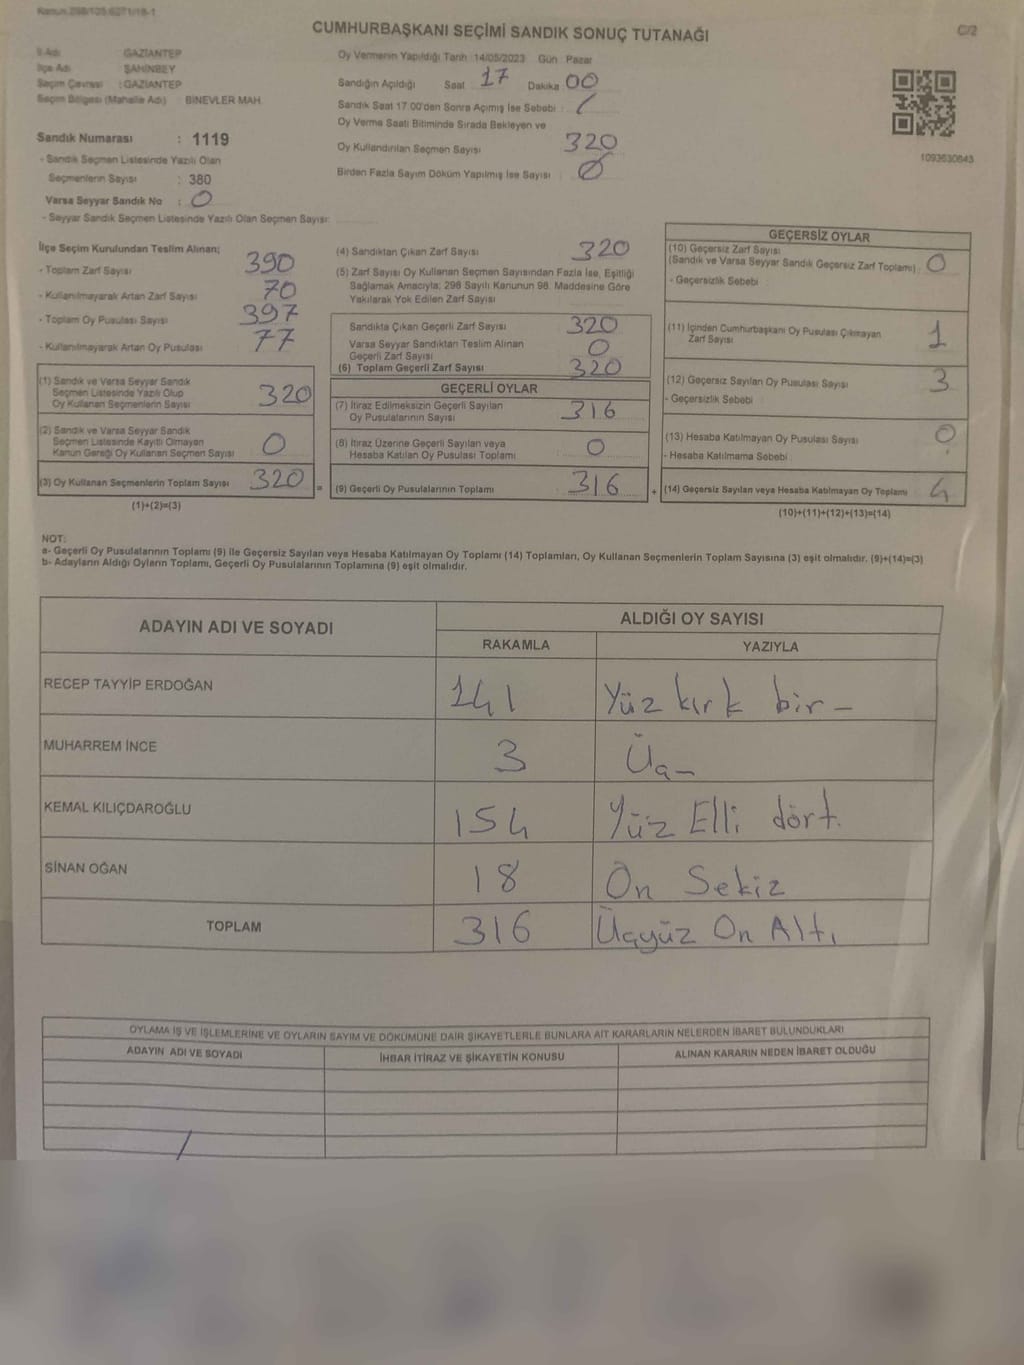 Kanun:298/105:6271/18-1
CUMHURBAŞKANI SEÇİMİ SANDIK SONUÇ TUTANAĞI
C/2
İl Adı : GAZİANTEP
İlçe Adı : ŞAHİNBEY
Seçim Çevresi : GAZİANTEP
Seçim Bölgesi (Mahalle Adı) : BİNEVLER MAH.
Sandık Numarası : 1119
- Sandık Seçmen Listesinde Yazılı Olan
Seçmenlerin Sayısı : 380
Varsa Seyyar Sandık No : 0
- Seyyar Sandık Seçmen Listesinde Yazılı Olan Seçmen Sayısı:
Oy Vermenin Yapıldığı Tarih :14/05/2023 Gün Pazar
Sandığın Açıldığı Saat 17 Dakika 00
Sandık Saat 17.00'den Sonra Açımış İse Sebebi : /
Oy Verme Saati Bitiminde Sırada Bekleyen ve
Oy Kullandırılan Seçmen Sayısı 320
Birden Fazla Sayım Döküm Yapılmış İse Sayısı Ø
1093630643
İlçe Seçim Kurulundan Teslim Alınan;
- Toplam Zarf Sayısı 390
- Kullanılmayarak Artan Zarf Sayısı 70
- Toplam Oy Pusulası Sayısı 397
- Kullanılmayarak Artan Oy Pusulası 77
(1) Sandık ve Varsa Seyyar Sandık
Seçmen Listesinde Yazılı Olup
Oy Kullanan Seçmenlerin Sayısı 320
(2) Sandık ve Varsa Seyyar Sandık
Seçmen Listesinde Kayıtlı Olmayan
Kanun Gereği Oy Kullanan Seçmen Sayısı 0
(3) Oy Kullanan Seçmenlerin Toplam Sayısı 320 =
(1)+(2)=(3)
(4) Sandıktan Çıkan Zarf Sayısı 320
(5) Zarf Sayısı Oy Kullanan Seçmen Sayısından Fazla İse, Eşitliği
Sağlamak Amacıyla; 298 Sayılı Kanunun 98. Maddesine Göre
Yakılarak Yok Edilen Zarf Sayısı
Sandıkta Çıkan Geçerli Zarf Sayısı 320
Varsa Seyyar Sandıktan Teslim Alınan
Geçerli Zarf Sayısı 0
(6) Toplam Geçerli Zarf Sayısı 320
GEÇERLİ OYLAR
(7) İtiraz Edilmeksizin Geçerli Sayılan
Oy Pusulalarının Sayısı 316
(8) İtiraz Üzerine Geçerli Sayılan veya
Hesaba Katılan Oy Pusulası Toplamı 0
(9) Geçerli Oy Pusulalarının Toplamı 316 +
GEÇERSİZ OYLAR
(10) Geçersiz Zarf Sayısı
(Sandık ve Varsa Seyyar Sandık Geçersiz Zarf Toplamı) : 0
- Geçersizlik Sebebi
(11) İçinden Cumhurbaşkanı Oy Pusulası Çıkmayan
Zarf Sayısı 1
(12) Geçersiz Sayılan Oy Pusulası Sayısı 3
- Geçersizlik Sebebi
(13) Hesaba Katılmayan Oy Pusulası Sayısı 0
- Hesaba Katılmama Sebebi
(14) Geçersiz Sayılan veya Hesaba Katılmayan Oy Toplamı 4
(10)+(11)+(12)+(13)=(14)
NOT:
a- Geçerli Oy Pusulalarının Toplamı (9) ile Geçersiz Sayılan veya Hesaba Katılmayan Oy Toplamı (14) Toplamları, Oy Kullanan Seçmenlerin Toplam Sayısına (3) eşit olmalıdır. (9)+(14)=(3)
b- Adayların Aldığı Oyların Toplamı, Geçerli Oy Pusulalarının Toplamına (9) eşit olmalıdır.
ADAYIN ADI VE SOYADI
ALDIĞI OY SAYISI
RAKAMLA YAZIYLA
RECEP TAYYİP ERDOĞAN 141 Yüz kırk bir -
MUHARREM İNCE 3 Üç -
KEMAL KILIÇDAROĞLU 154 Yüz Elli dört.
SİNAN OĞAN 18 On Sekiz
TOPLAM 316 Üçyüz On Altı
OYLAMA İŞ VE İŞLEMLERİNE VE OYLARIN SAYIM VE DÖKÜMÜNE DAİR ŞİKAYETLERLE BUNLARA AİT KARARLARIN NELERDEN İBARET BULUNDUKLARI
ADAYIN ADI VE SOYADI İHBAR İTİRAZ VE ŞİKAYETİN KONUSU ALINAN KARARIN NEDEN İBARET OLDUĞU
/